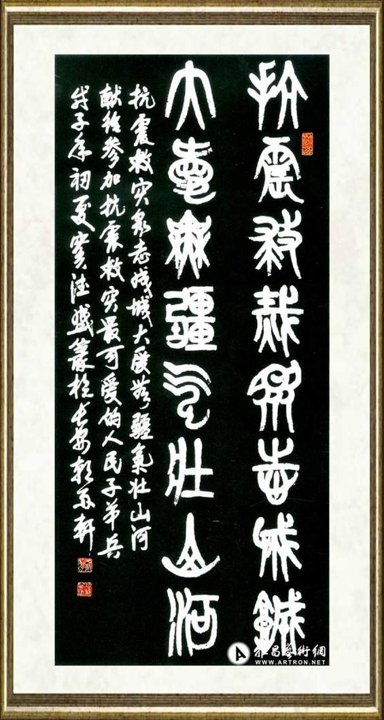 抗震救烖眾志成城
大愛無疆气壯山河
抗震救灾众志成城大爱无疆气壮山河
献给参加抗震救灾最可爱的人民子弟兵
戊子年初夏
篆于长安
轩
雅昌藝術網
WWW.ARTRON.NET